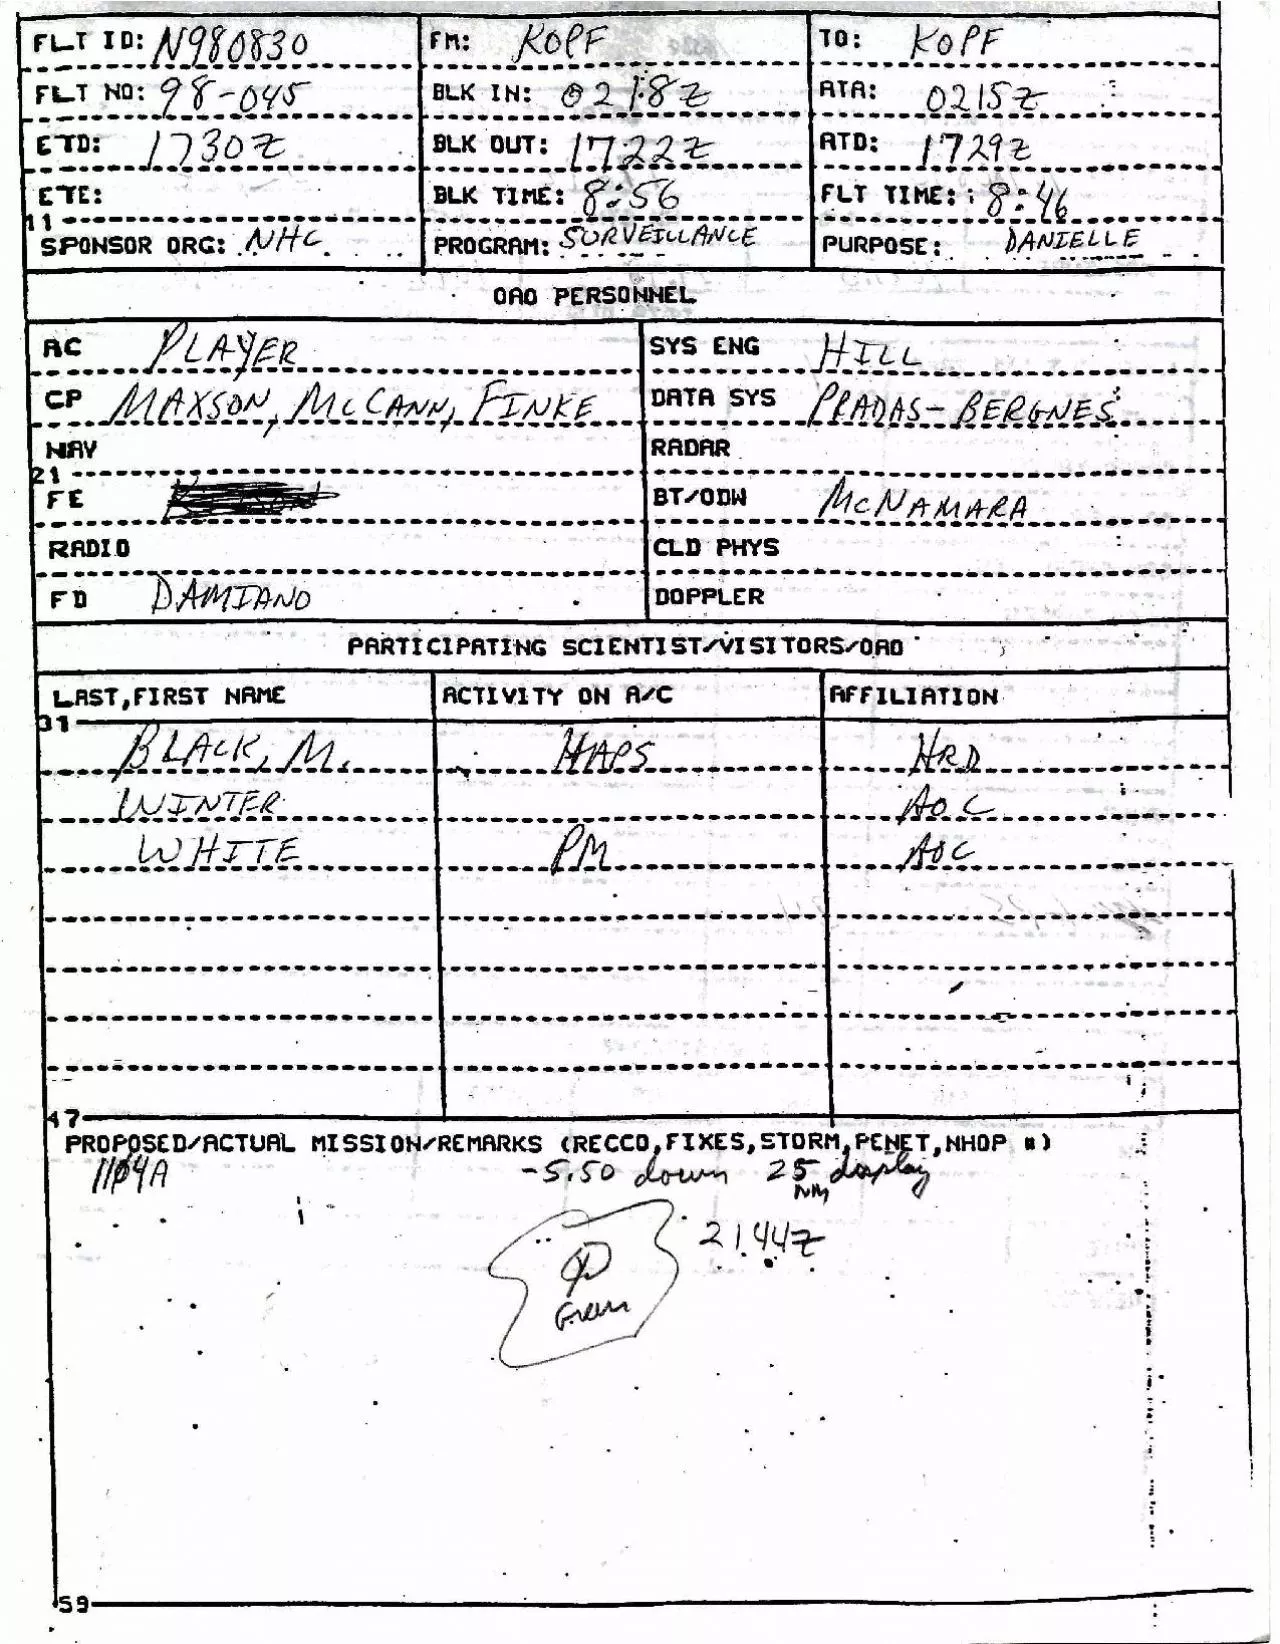 FLT ID: N980830 FM: KOPF TO: KOPF
FLT NO: 98-045 BLK IN: 0218Z ATA: 0215Z
ETD: 1730Z BLK OUT: 1722Z ATD: 1729Z
ETE: BLK TIME: 8:56 FLT TIME: 8:46
11
SPONSOR ORG: NHC PROGRAM: SURVEILLANCE PURPOSE: DANIELLE
OAO PERSONNEL
AC PLAYER SYS ENG HILL
CP MAXSON, McCANN, FINKE DATA SYS PRADAS-BERGNES
NAV RADAR
21
FE BT/ODW McNAMARA
RADIO CLD PHYS
FD DAMIANO DOPPLER
PARTICIPATING SCIENTIST/VISITORS/OAO
LAST,FIRST NAME ACTIVITY ON A/C AFFILIATION
31
BLACK, M. HAPS HRD
WINTER AOC
WHITE PM AOC
47
PROPOSED/ACTUAL MISSION/REMARKS (RECCO,FIXES,STORM,PENET,NHOP #)
1104A -5.50 down 25 NM display
21.44Z
59